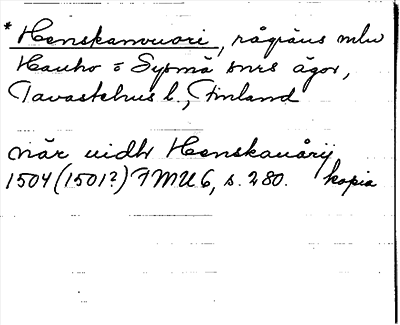 * Henskanvuori, rågräns mlw
Hauho o Sysmä snrs ägor,
Tavastehus l., Finland
når uidh Henskauårij
1504 (1501?) FMU 6, s. 280. kopia